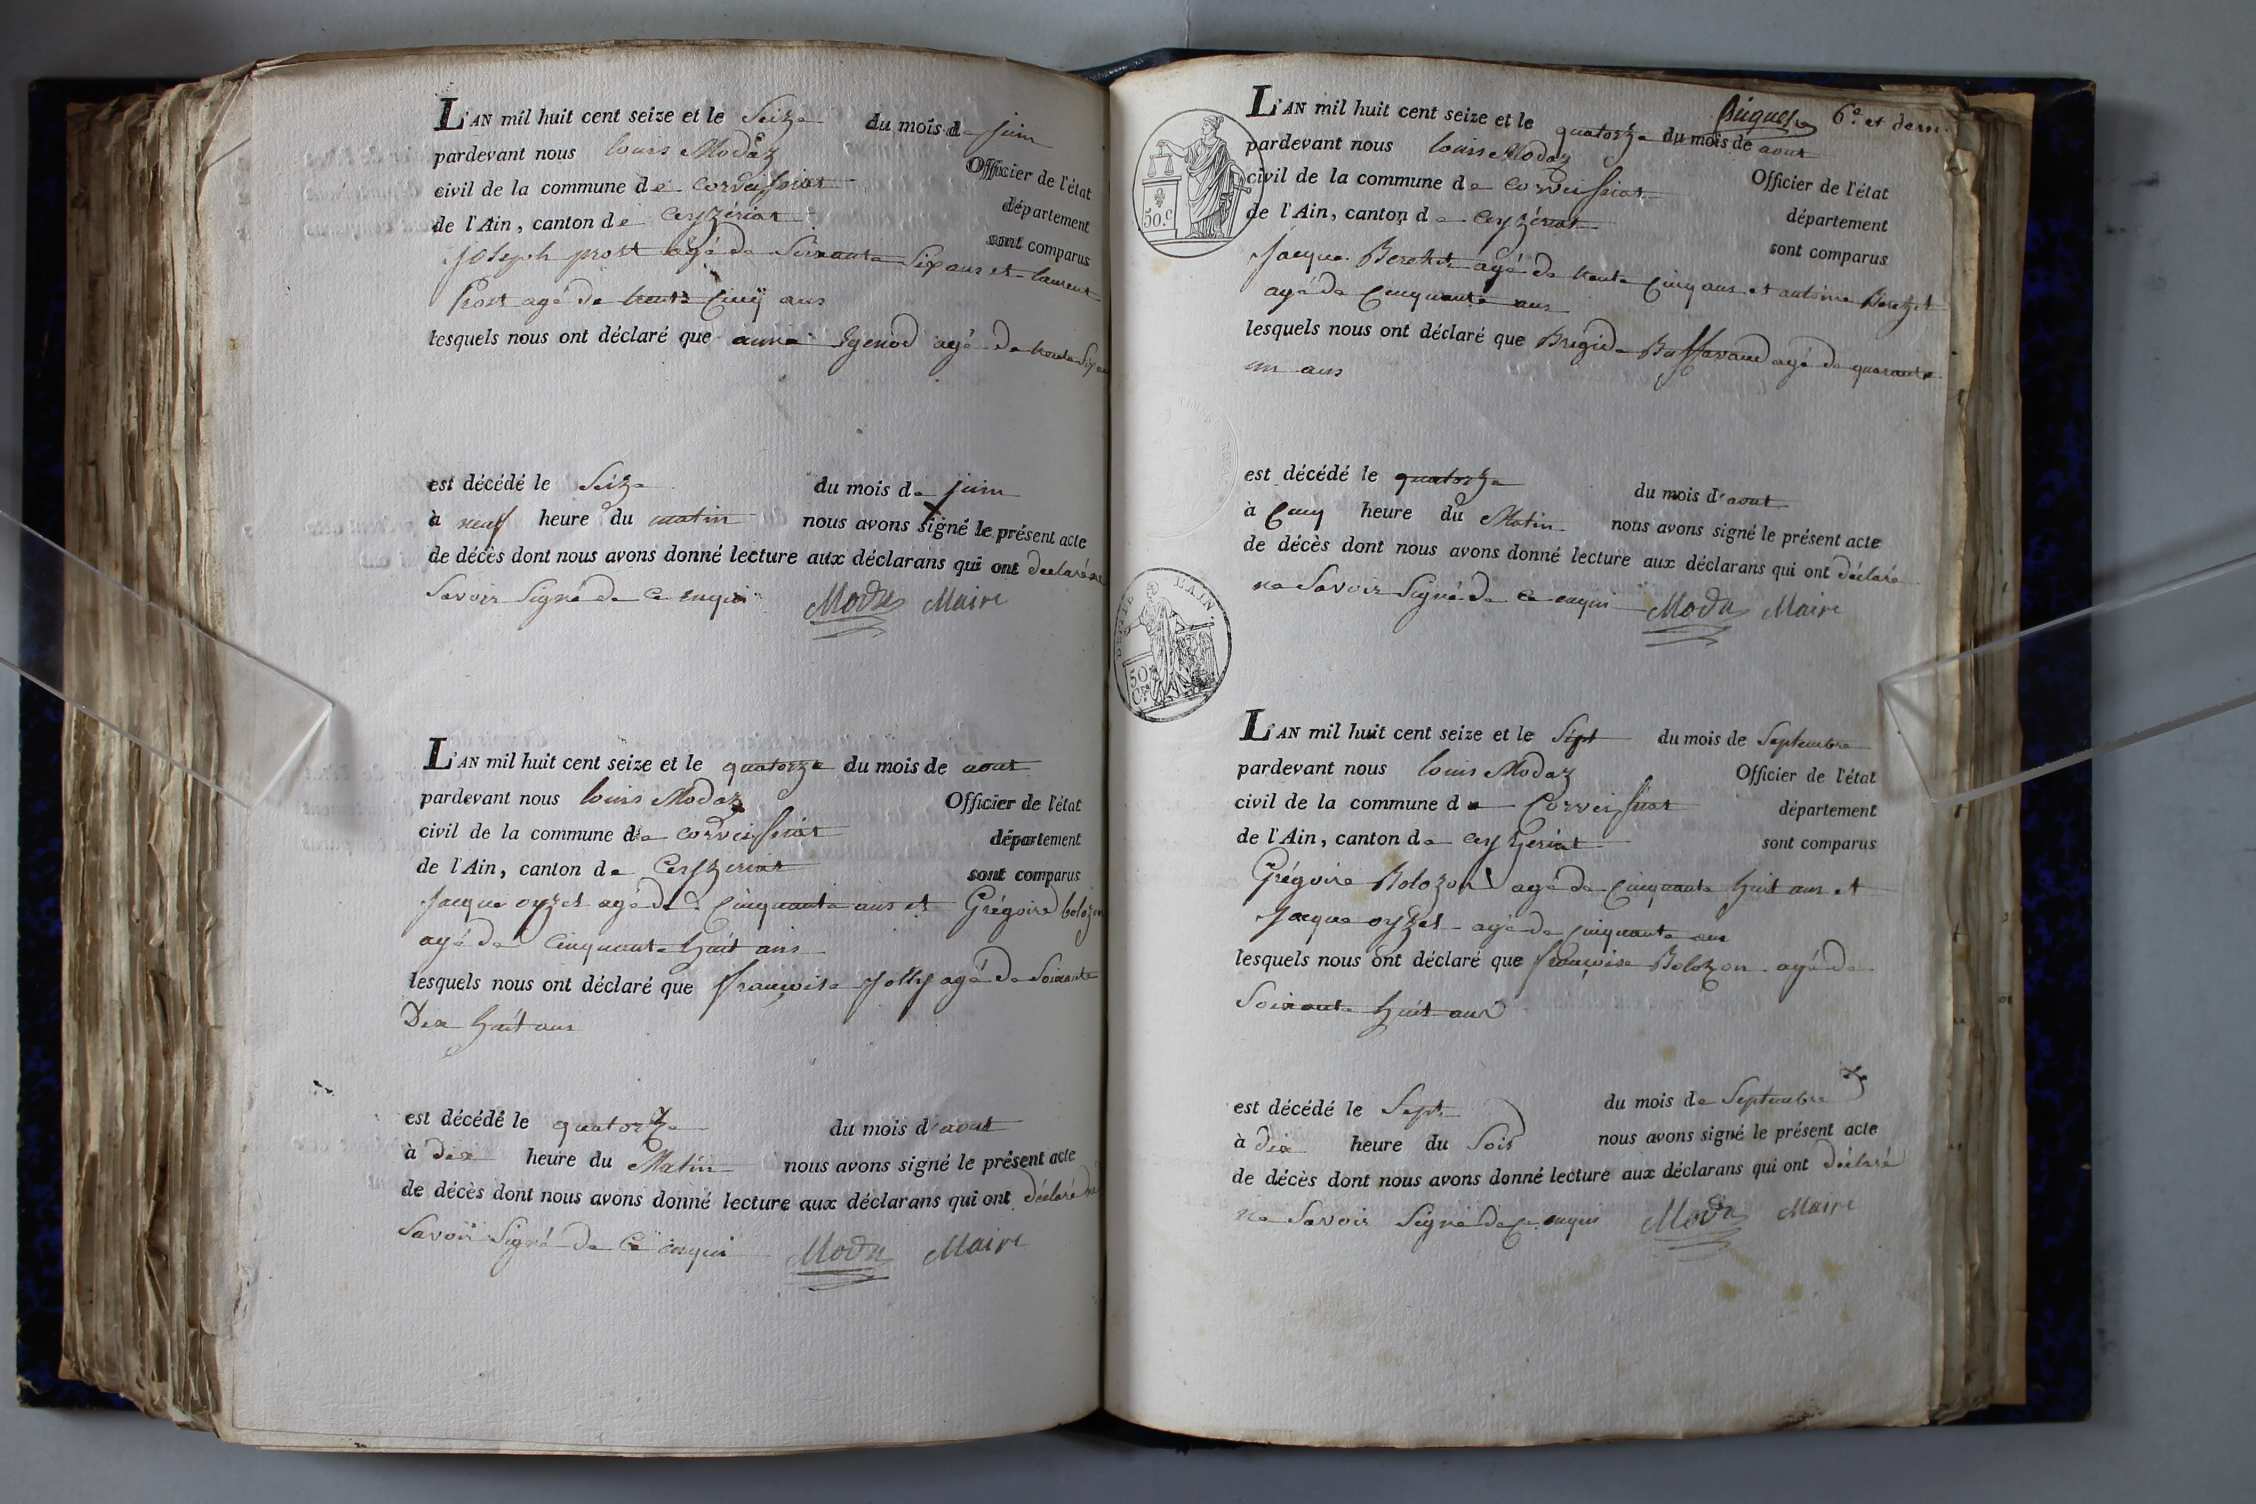 L'AN mil huit cent seize et le Seize du mois de juin
pardevant nous louis Modaz Officier de l'état
civil de la commune de Corveissiat département
de l'Ain, canton de Ceyzériat sont comparus
Joseph prost agé de Soixante Six ans et laurent
Prost agé de trente Cinq ans
lesquels nous ont déclaré que anne Ygenod agé de trente Six ans
est décédé le Seize du mois de juin
à neuf heure du matin nous avons signé le présent acte
de décès dont nous avons donné lecture aux déclarans qui ont declaré ne
Savoir Signé de ce enqui Moda Maire
L'AN mil huit cent seize et le quatorze du mois de aout
pardevant nous louis Modaz Officier de l'état
civil de la commune de corveissiat département
de l'Ain, canton de Ceyzeriat sont comparus
Jacque oyzet agé de Cinquante ans et Grégoire bolozon
agé de Cinquante huit ans
lesquels nous ont déclaré que françoise Jolly agé de Soixante
Dix huit ans
est décédé le quatorze du mois d'aout
à dix heure du Matin nous avons signé le présent acte
de décès dont nous avons donné lecture aux déclarans qui ont déclaré ne
Savoir Signé de Ce enqui Moda Maire
6e et dern.
L'AN mil huit cent seize et le quatorze du mois de aout
pardevant nous louis Modaz Officier de l'état
civil de la commune de Corveissiat département
de l'Ain, canton de Ceyzériat sont comparus
50.c
Jacque Berohet agé de trente Cinq ans et antoine Berohet
agé de Cinquante ans
lesquels nous ont déclaré que Brigide Buffavand agé de quarante
un ans
est décédé le quatorze du mois d'aout
à Cinq heure du Matin nous avons signé le présent acte
de décès dont nous avons donné lecture aux déclarans qui ont déclaré
ne Savoir Signé de ce enqui Moda Maire
L'AIN.
50
L'AN mil huit cent seize et le Sept du mois de Septembre
pardevant nous louis Modaz Officier de l'état
civil de la commune de Corveissiat département
de l'Ain, canton de Ceyzeriat sont comparus
Grégoire Bolozon agé de Cinquante huit ans et
Jacque oyzet agé de Cinquante ans
lesquels nous ont déclaré que françoise Bolozon agé de
Soixante huit ans
est décédé le Sept du mois de Septembre
à dix heure du Soir nous avons signé le présent acte
de décès dont nous avons donné lecture aux déclarans qui ont déclaré
ne Savoir Signé de Ce enqui Moda Maire